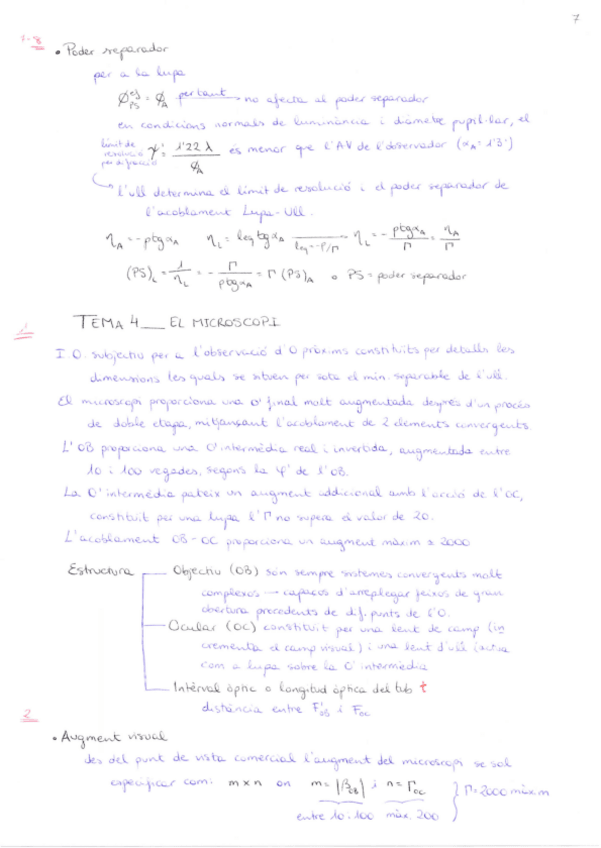 7
7-8
• Poder separador
per a la lupa
Ø^ef_PS = Ø_A per tant → no afecta al poder separador
en condicions normals de luminància i diàmetre pupil·lar, el
límit de resolució per difracció ψ' = 1'22 λ / Ø_A és menor que l'AV de l'observador (α_A = 1'3')
L'ull determina el límit de resolució i el poder separador de
l'acoblament Lupa-Ull.
η_A = -p tg α_A η_L = l_eq tg α_A l_eq = -p/Γ η_L = - p tg α_A / Γ = η_A / Γ
(PS)_L = 1/η_L = - Γ / p tg α_A = Γ (PS)_A o PS = poder separador
TEMA 4__ EL MICROSCOPI
1
I.O. subjectiu per a l'observació d'O pròxims constituïts per detalls les
dimensions les quals se situen per sota el mín. separable de l'ull.
El microscopi proporciona una O' final molt augmentada després d'un procés
de doble etapa, mitjançant l'acoblament de 2 elements convergents.
L'OB proporciona una O' intermèdia real i invertida, augmentada entre
10 i 100 vegades, segons la φ' de l'OB.
La O' intermèdia pateix un augment addicional amb l'acció de l'OC,
constituït per una lupa l'Γ no supera el valor de 20.
L'acoblament OB-OC proporciona un augment màxim ± 2000
Estructura
Objectiu (OB) són sempre sistemes convergents molt
complexos → capaços d'arreplegar feixos de gran
obertura procedents de dif. punts de l'O.
Ocular (OC) constituït per una lent de camp (in
crementa el camp visual) i una lent d'ull (actua
com a lupa sobre la O' intermèdia
Intèrval òptic o longitud òptica del tub t
distància entre F'_OB i F_OC
2
• Augment visual
des del punt de vista comercial l'augment del microscopi se sol
especificar com: m x n on m = |β'_OB| i n = Γ_OC } Γ = 2000 màx.m
entre 10-100 màx. 200